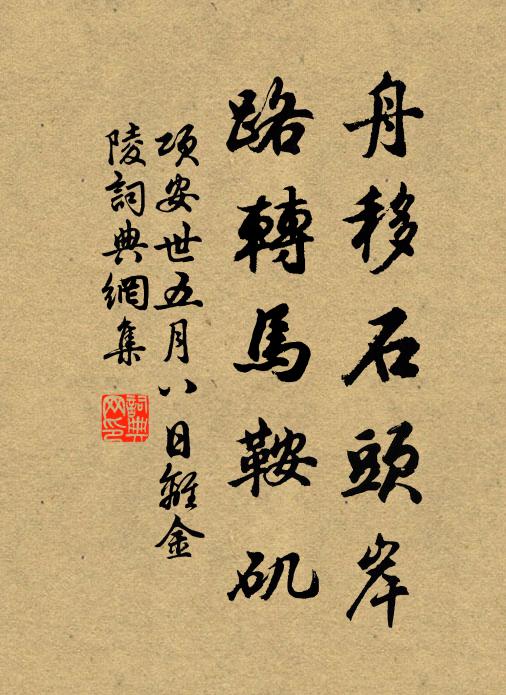 舟移石頭岸
路轉馬鞍矶
項安世五月八日離金
陵詞典網集
詞典
网印